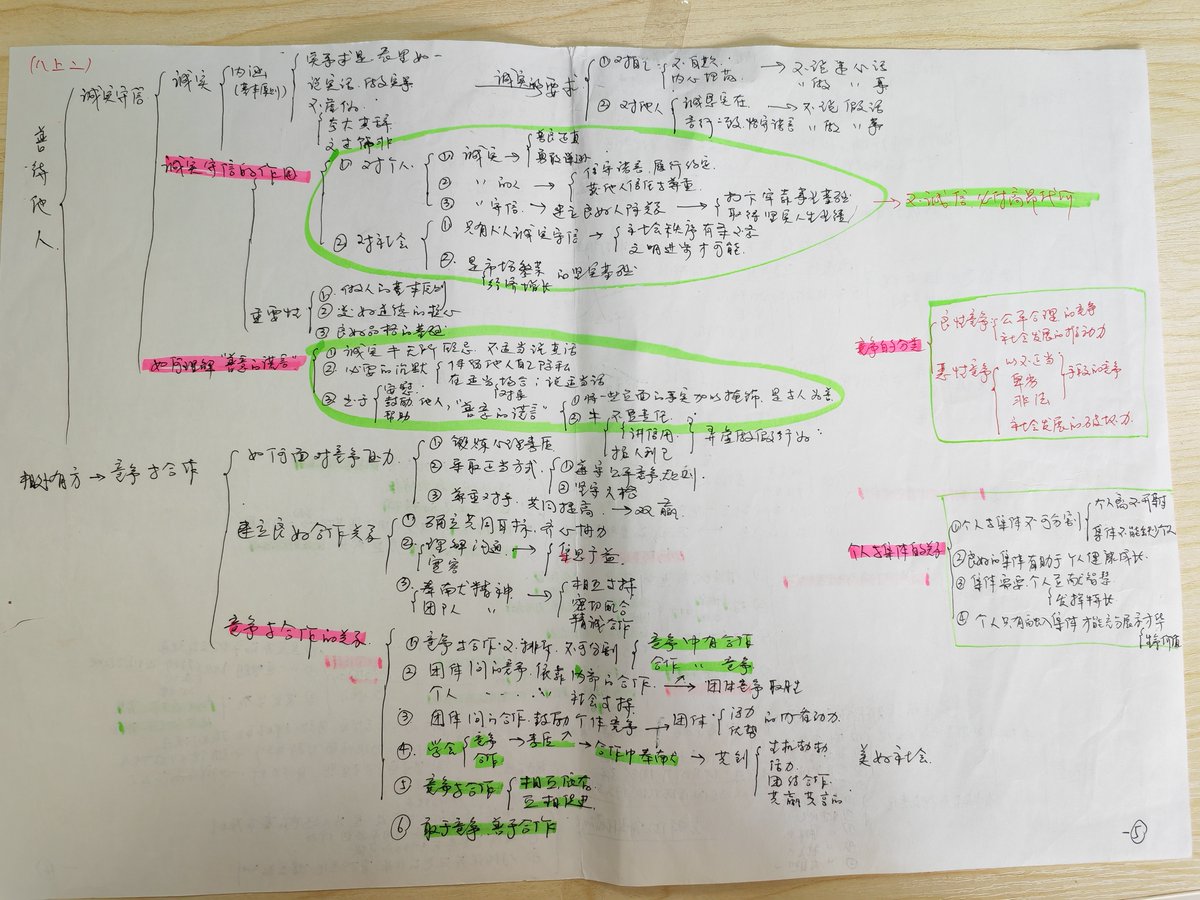 (八上二)
善待他人
诚实守信
诚实
内涵
(基本原则)
实事求是 表里如一
说实话 做实事
不虚伪
夸大其辞
文过饰非
诚实的要求
① 对自己
不自欺
→ 不说违心话
〃 做 〃 事
② 对他人
诚恳实在
言行一致 恪守诺言
→ 不说假话
〃 做 〃 事
诚实守信的作用
① 对个人
① 诚实 →
善良正直
② 〃 的人 →
信守诺言 履行约定
获他人信任与尊重
③ 〃 守信 → 建立良好人际关系 →
取得坚实人生业绩
→ 不诚信 必付高昂代价
② 对社会
① 只有人人诚实守信 →
社会秩序有条不紊
文明进步才可能
② 是市场繁荣 的坚实基础
经济增长
重要性
① 做人的基本原则
② 美好道德的核心
③ 良好品格的基础
如何理解"善意的谎言"
① 诚实并无所顾忌 不适当说真话
② 必要的沉默
保留他人自己隐私
在适当场合 说适当话
③ 出于
安慰
鼓励 他人,"善意的谎言"
帮助
① 将一些负面的事实加以掩饰 是与人为善
② 并
不负责任
不讲信用
损人利己
弄虚做假行为
竞争的分类
良性竞争 公平合理的竞争
社会发展的推动力
恶性竞争
以不正当
卑劣
非法
手段的竞争
社会发展的破坏力
相处有方 → 竞争与合作
如何面对竞争压力
① 锻炼心理素质
② 采取正当方式
① 遵守公平竞争规则
② 坚守人格
③ 尊重对手 共同提高 → 双赢
建立良好合作关系
① 确立共同目标 齐心协力
② 理解沟通 →
宽容
集思广益
③ 奉献大精神 →
团队 〃
相互支持
密切配合
精诚合作
个人与集体的关系
① 个人与集体不可分割
个人离不开集体
集体不能缺少个人
② 良好的集体有助于个人健康成长
③ 集体需要个人贡献智慧
发挥特长
④ 个人只有融入集体才能充分展示才华
竞争与合作的关系
① 竞争与合作不排斥 不可分割
竞争中有合作
合作 〃 竞争
② 团体间的竞争 依靠内部的合作 → 团体竞争取胜
个人 社会支持
③ 团体间的合作 鼓励个体竞争 → 团体
活力
优势
的内在动力
④ 学会
竞争 → 素质↗
合作
→ 合作中奉献人 → 共创
生机勃勃
活力
团结合作
共赢共享的
美好社会
⑤ 竞争与合作
相互依存
互相促进
⑥ 敢于竞争 善于合作
-⑤